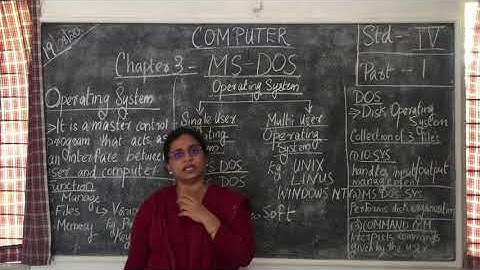 COMPUTER
Chapter 3 - MS-DOS
Std - IV
Part - 1
Operating System
→ It is a master control
program that acts as
an interface between
user and computer
Function
Manage
Files
Memory
Operating System
Single User
Operating
Multi user
Operating
System
Eg UNIX
LINUS
WINDOWS NT
DOS
→ Disk Operating
System
Collection of 3 files
(1) IO.SYS
handles input/output
management
(2) MS DOS.SYS
Performs disk organisation
(3) COMMAND.COM
Interprets commands
given by the user